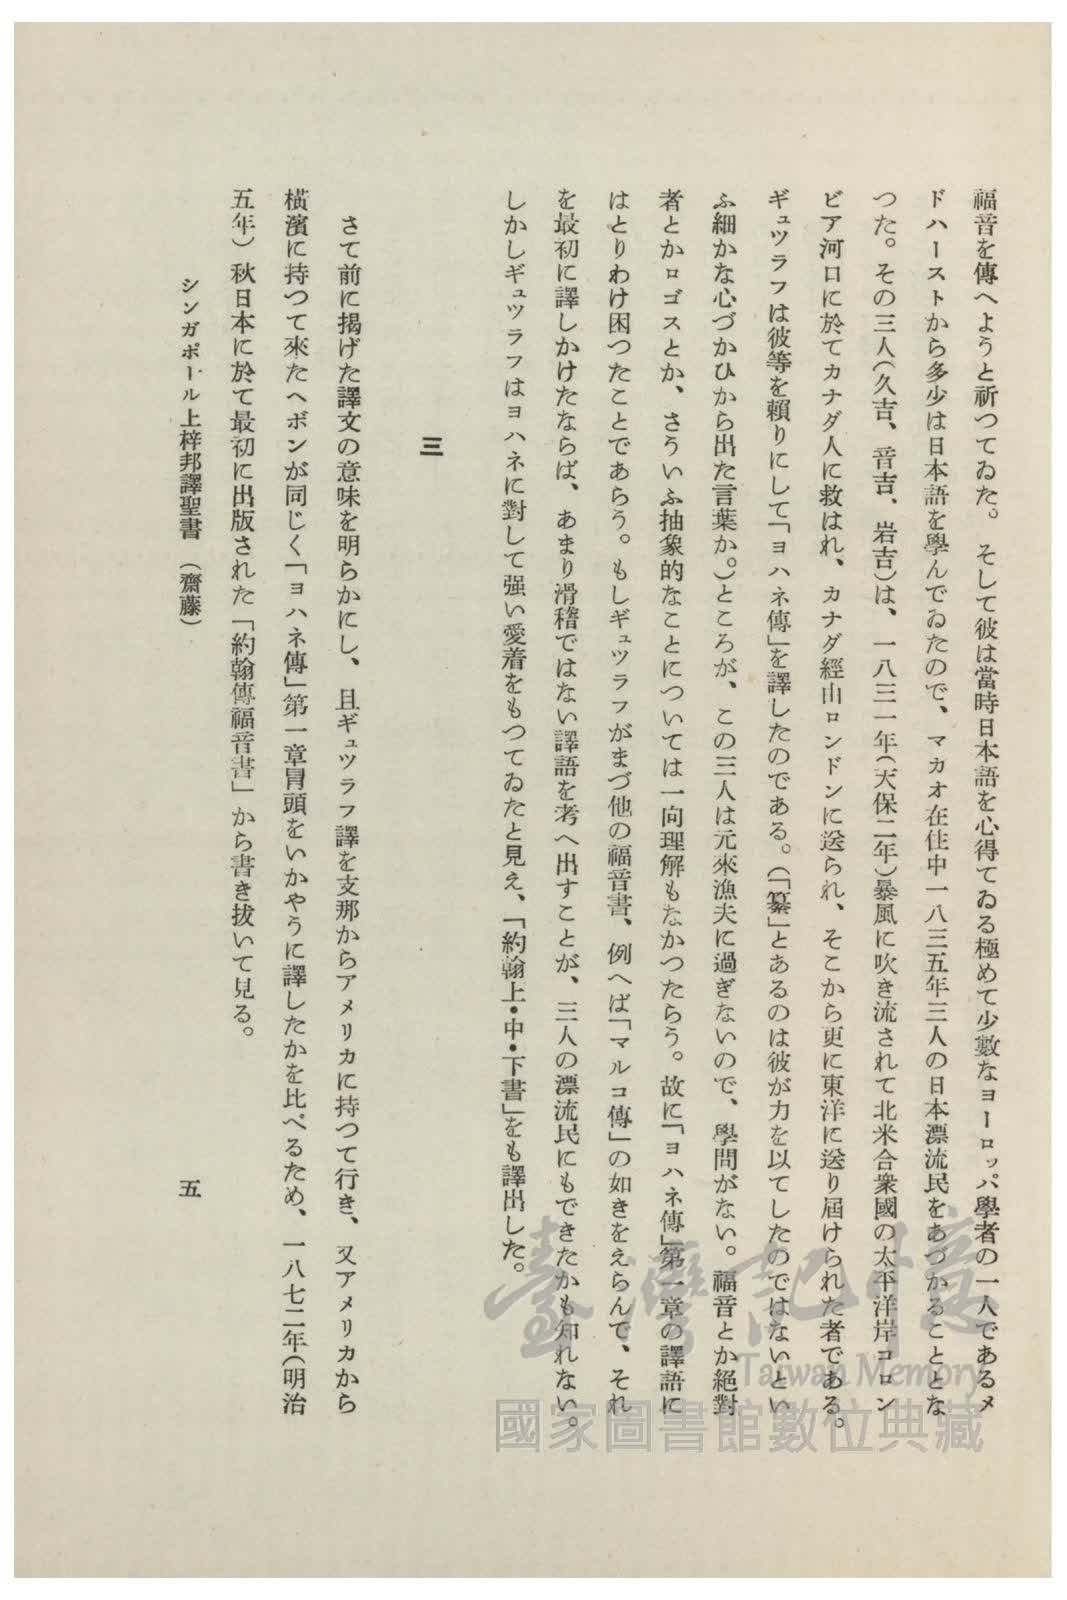 福音を傳へようと祈つてゐた。 そして彼は當時日本語を心得てゐる極めて少數なヨーロッパ學者の一人であるメ
ドハーストから多少は日本語を學んでゐたので、マカオ在住中一八三五年三人の日本漂流民をあづかることとな
つた。その三人(久吉、音吉、岩吉)は、一八三一年(天保二年)暴風に吹き流されて北米合衆國の太平洋岸コロン
ビア河口に於てカナダ人に救はれ、カナダ經由ロンドンに送られ、そこから更に東洋に送り屆けられた者である。
ギュツラフは彼等を賴りにして「ヨハネ傳」を譯したのである。(「纂」とあるのは彼が力を以てしたのではないとい
ふ細かな心づかひから出た言葉か。)ところが、この三人は元來漁夫に過ぎないので、學問がない。福音とか絕對
者とかロゴスとか、さういふ抽象的なことについては一向理解もなかつたらう。故に「ヨハネ傳」第一章の譯語に
はとりわけ困つたことであらう。もしギュツラフがまづ他の福音書、例へば「マルコ傳」の如きをえらんで、それ
を最初に譯しかけたならば、あまり滑稽ではない譯語を考へ出すことが、三人の漂流民にもできたかも知れない。
しかしギュツラフはヨハネに對して强い愛着をもつてゐたと見え、「約翰上・中・下書」をも譯出した。
三
さて前に揭げた譯文の意味を明らかにし、且ギュツラフ譯を支那からアメリカに持つて行き、又アメリカから
橫濱に持つて來たヘボンが同じく「ヨハネ傳」第一章冒頭をいかやうに譯したかを比べるため、一八七二年(明治
五年)秋日本に於て最初に出版された「約翰傳福音書」から書き拔いて見る。
シンガポール上梓邦譯聖書 (齋藤)
五
臺灣記憶
Taiwan Memory
國家圖書館數位典藏